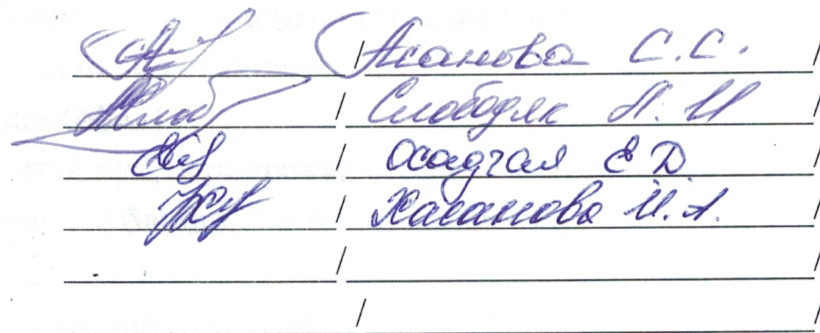 / Асанова С.С. /
/ Слободяк Л. И /
/ Осадчая Е Д /
/ Хасанова И.А. /
/ /
/ /